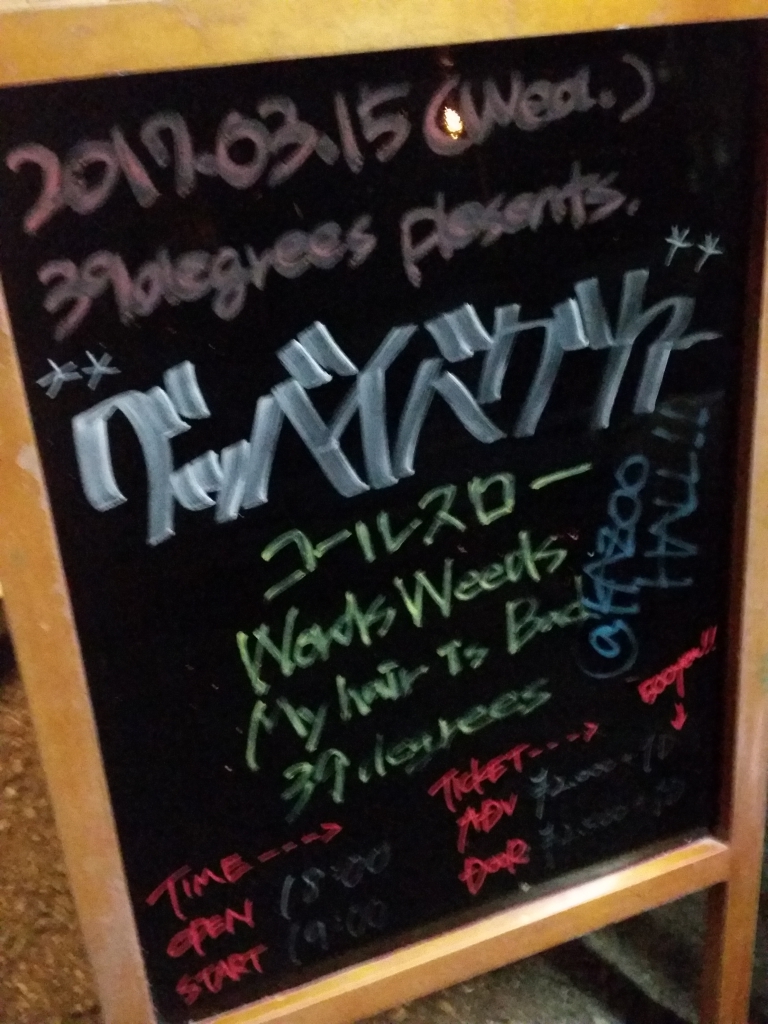 2017.03.15 (Wed.)
39degrees presents.
** グッバイバグッバイ **
コールスロー
Words Weeds
My hair is Bad
39degrees
@KAZOO
HALL!!
500yen!!
↓
TICKET---->
ADV ¥2,000+1D
DOOR ¥2,500+1D
TIME---->
OPEN 18:00
START 19:00